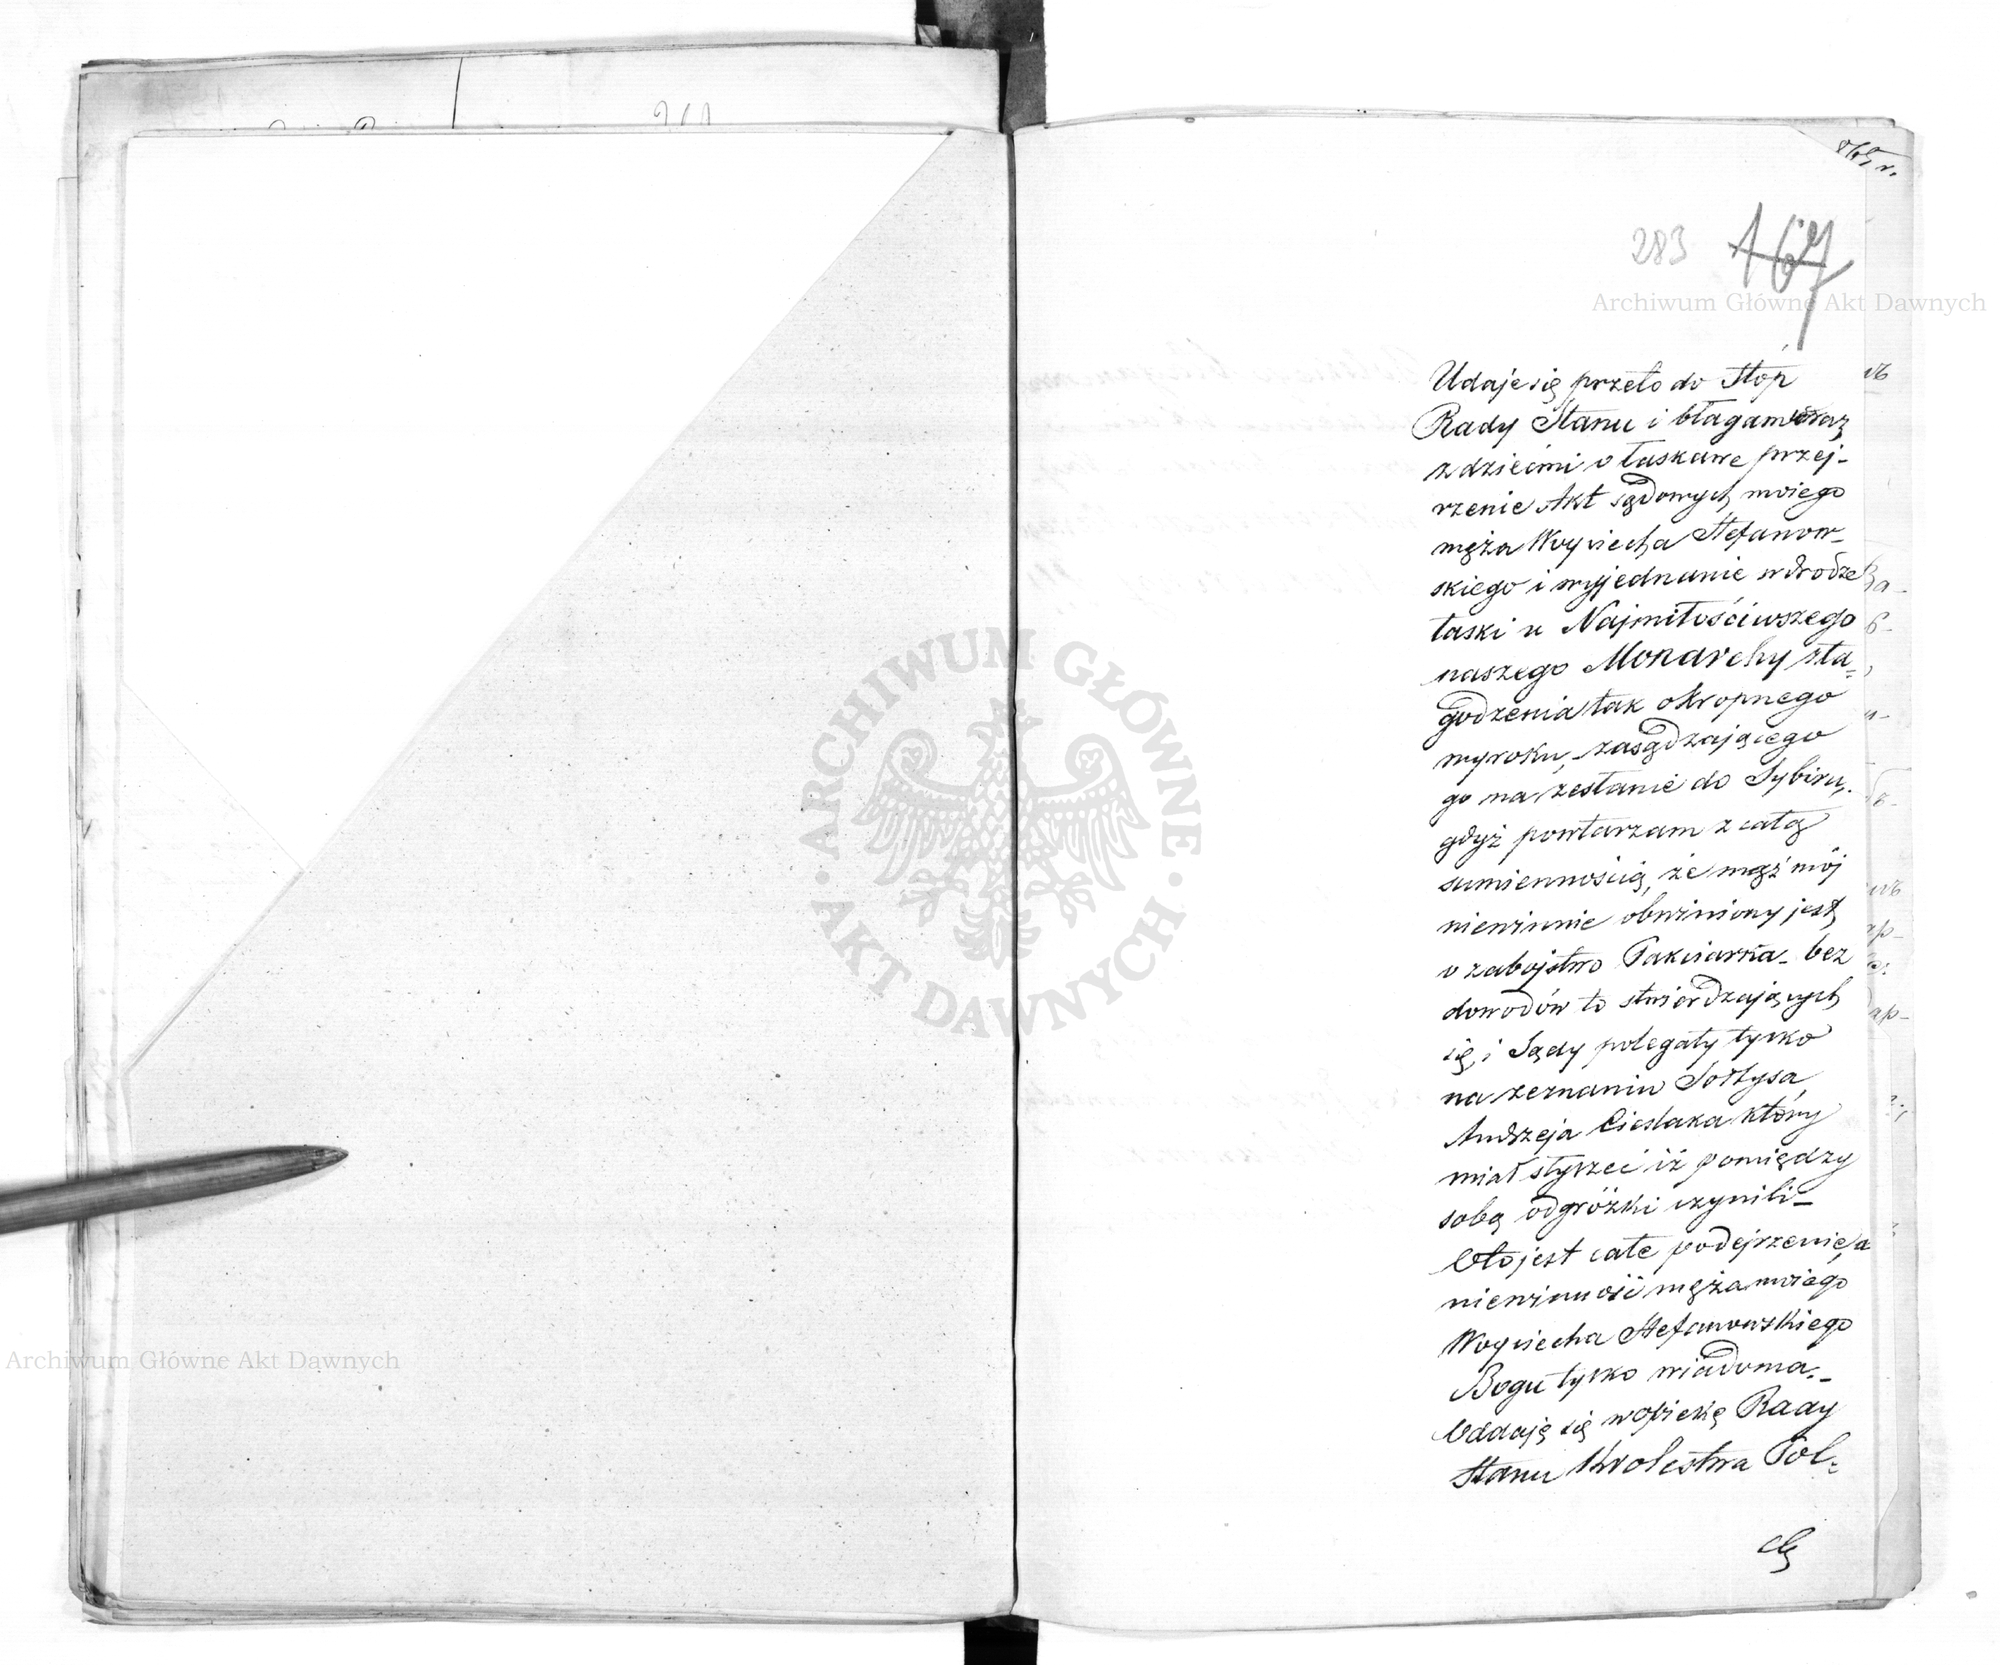 865 r.
283 167
Archiwum Główne Akt Dawnych
Udaje się przeto do stóp
Rady Stanu i błagam wraz
z dziećmi o łaskawe przej-
rzenie Akt sądowych mojego
męża Woyciecha Stefanow-
skiego i wyjednanie w drodze
łaski u Najmiłościwszego
naszego Monarchy zła-
godzenia tak okropnego
wyroku, zasądzającego
go na zesłanie do Sybiru,
gdyż powtarzam z całą
sumiennością, że mąż mój
niewinnie obwiniony jest
o zabojstwo Pakciarza - bez
dowodów to stwierdzających
się, i Sądy polegały tylko
na zeznaniu Sołtysa
Andrzeja Cieslaka który
miał słyszeć iż pomiędzy
sobą odgróżki czynili -
Oto jest całe podejrzenie, a
niewinność męża mojego
Woyciecha Stefanowskiego
Bogu tylko wiadoma. -
Oddaję się w opiekę Rady
Stanu Krolestwa Pol-
ARCHIWUM GŁÓWNE
AKT DAWNYCH
Archiwum Główne Akt Dawnych